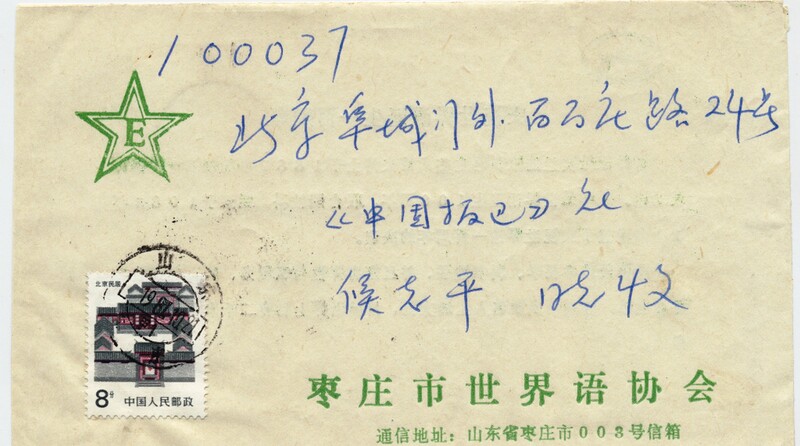 100037
E
北京阜城门外百万庄路24号
《中国报道》社
侯志平 同志收
山东
北京民居
8分 中国人民邮政
枣庄市世界语协会
通信地址：山东省枣庄市003号信箱